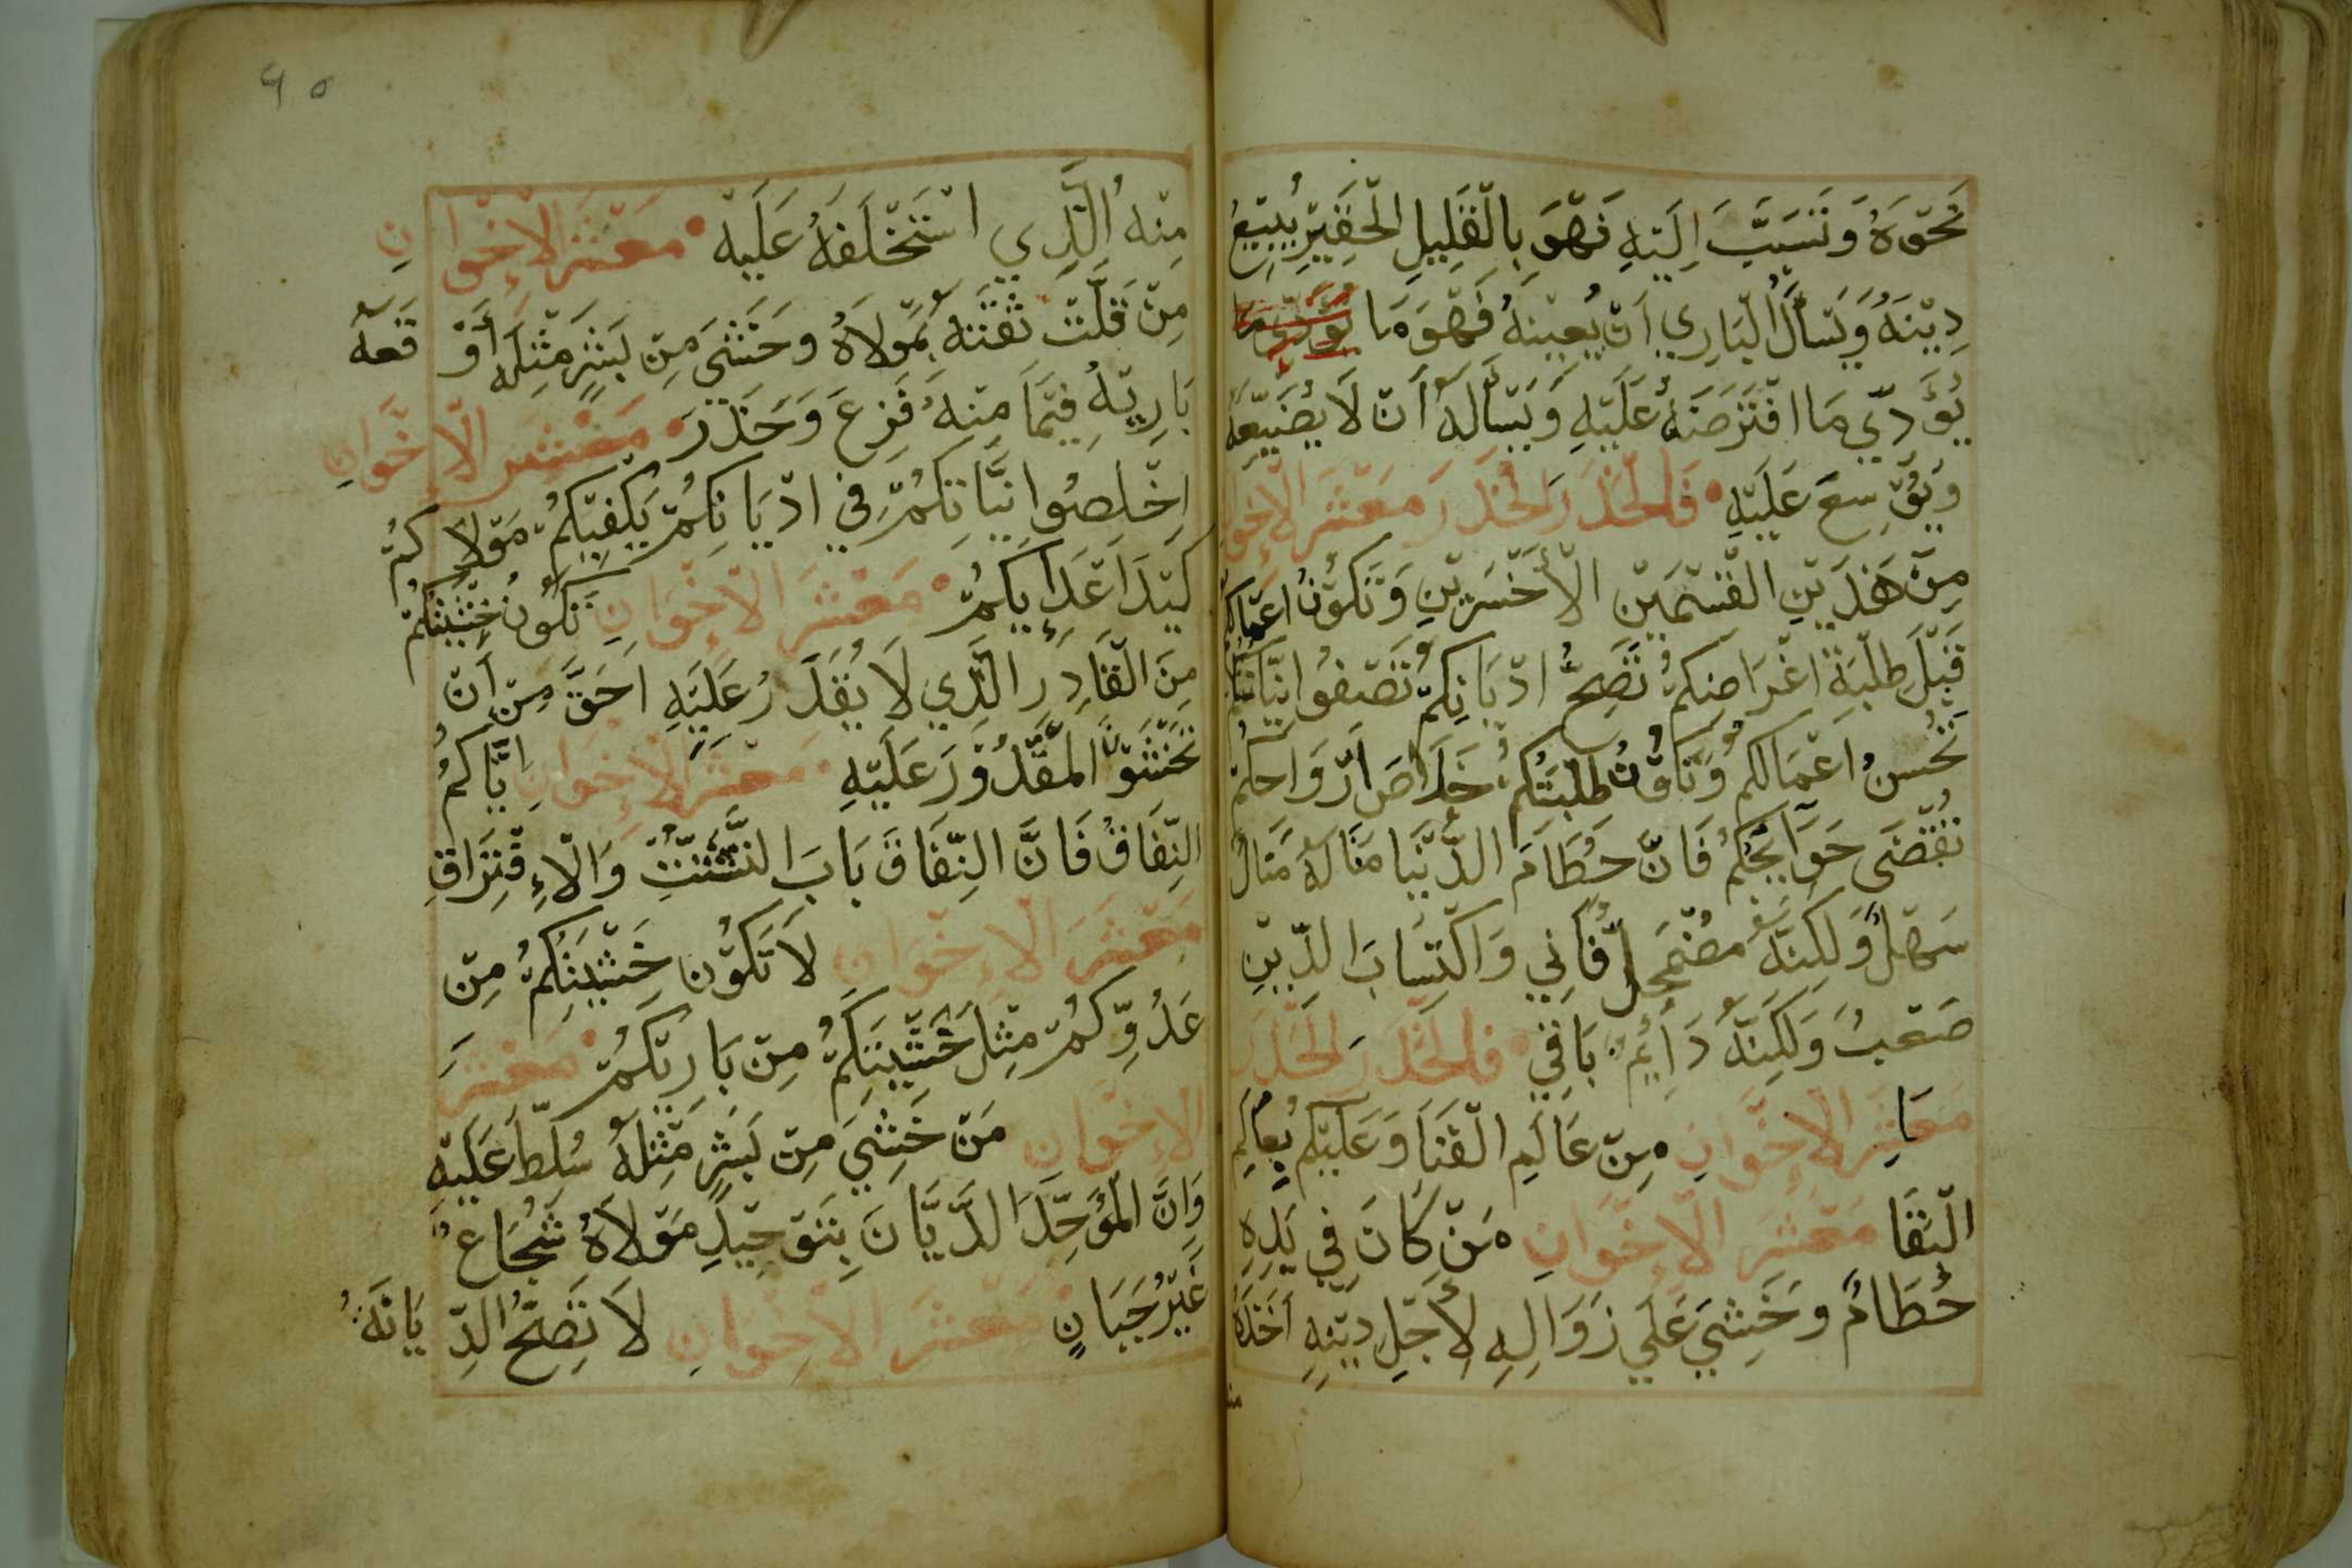 نَحْوَهُ وَنَسَبَ اِلَيْهِ فَهْوَ بِالْقَلِيلِ الْحَقِيْرِ يُبِيْعُ
دِيْنَهُ وَيَسْأَلُ الْبَارِي اَنْ يُعِيْنَهُ فَهْوَ مَا يُوَدِّي مَا
يُؤَدِّي مَا افْتَرَضَهُ عَلَيْهِ وَيَسْأَلَهُ اَنْ لَا يُضَيِّعَهُ
وَيُوْسِعَ عَلَيْهِ • فَالْحَذَرَ الْحَذَرَ مَعْشَرَ الْاِخْوَان
مِنْ هَذَيْنِ الْقِسْمَيْنِ الْأَخْسَرَيْنِ وَتَكُوْنُ اَعْمَالِكُم
قَبْلَ طِلْبَةَ اَغْرَاضِكُمْ تَصِحُّ اَدْيَانِكُمْ تَصْفُوا نِيَّاتِكُم
تَحْسُنُ اَعْمَالِكُمْ وَتَكُوْنُ طِلْبَتُكُمْ خَلَاصَ اَرْوَاحَكُمْ
تُقْضَى حَوَايِجُكُمْ فَاِنَّ حُطَامَ الدُّنْيَا مَنَالَهُ مَنَالٌ
سَهْلٌ وَلَكِنَّهُ مُضْمَحِلٌّ فَانِي وَاكْتِسَابَ الدِّيْنِ
صَعْبٌ وَلَكِنَّهُ دَايِمٌ بَاقِي • فَالْحَذَرَ الْحَذَرَ
مَعَاشِرَ الْاِخْوَانِ مِنْ عَالَمِ الْفَنَا وَعَلَيْكُمْ بِعَالَمِ
الْبَقَا مَعْشَرَ الْاِخْوَانِ مَنْ كَانَ فِي يَدِهِ
حُطَامٌ وَخَشِيَ عَلَى زَوَالِهِ لِأَجْلِ دِيْنِهِ اَخَذَهُ
مِنْهُ الَّذِي اسْتَخْلَفَهُ عَلَيْهِ • مَعْشَرَ الْاِخْوَانِ
مِنْ قَلَّتْ ثِقَتَهُ بِمَوْلَاهُ وَخَشِيَ مِنْ بَشَرٍ مِثْلَهُ أَوْقَعَهُ
بَارِيْهُ فِيْمَا مِنْهُ فَزِعَ وَحَذَرَ • مَعْشَرَ الْاِخْوَانِ
اِخْلِصُوا نِيَّاتِكُمْ فِي اَدْيَانِكُمْ يَكْفِيْكُمْ مَوْلَاكُمْ
كَيْدَ اَعْدَايِكُمْ • مَعْشَرَ الْاِخْوَانِ تَكُونُ خَشْيَتُكُمْ
مِنَ الْقَادِرِ الَّذِي لَا يُقْدَرُ عَلَيْهِ اَحَقَّ مِنْ اَنْ
تَخْشَوْا الْمَقْدُوْرَ عَلَيْهِ • مَعْشَرَ الْاِخْوَانِ اِيَّاكُمْ
النِّفَاقَ فَاِنَّ النِّفَاقَ بَابَ التَّشَتُّتِ وَالْاِفْتِرَاقِ
مَعْشَرَ الْاِخْوَانِ لَا تَكُوْن خَشْيَتُكُمْ مِنْ
عَدُوِّكُمْ مِثْلَ خَشْيَتِكُمْ مِنْ بَارِيْكُمْ • مَعْشَرَ
الْاِخْوَانِ مَنْ خَشِيَ مِنْ بَشَرٍ مِثْلَهُ سُلِّطَ عَلَيْهِ
وَاِنَّ الْمُوَحِّدَ الدَّيَّانَ بِتَوْحِيْدِ مَوْلَاهُ شُجَاعٌ
غَيْرُ جَبَانٍ • مَعْشَرَ الْاِخْوَانِ لَا تَصِحُّ الدِّيَانَةُ